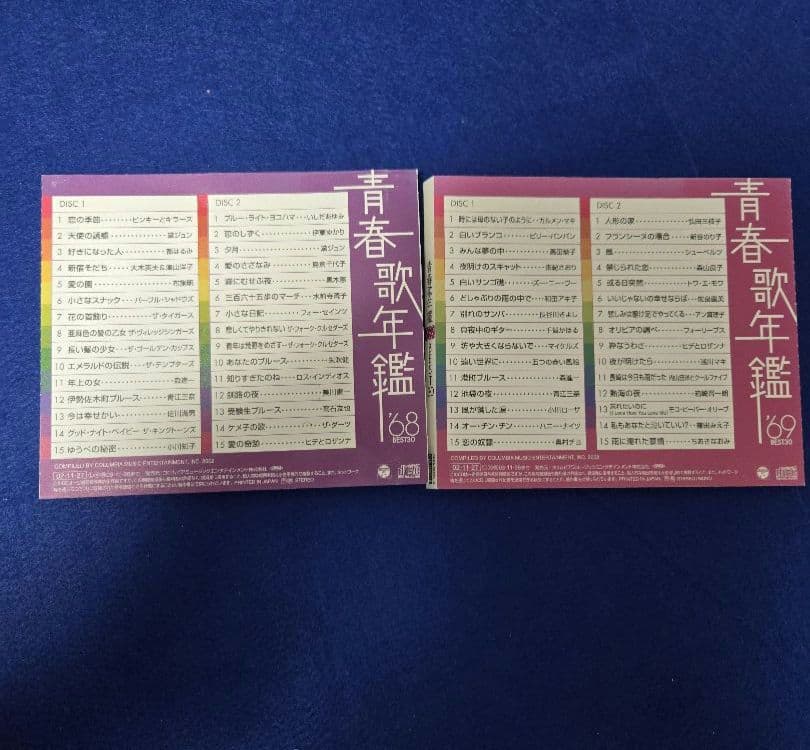 DISC 1
1 恋の季節………ピンキーとキラーズ
2 天使の誘惑………黛ジュン
3 好きになった人………都はるみ
4 新宿そだち………大木英夫&津山洋子
5 愛の園………布施明
6 小さなスナック………パープル・シャドウズ
7 花の首飾り………ザ・タイガース
8 亜麻色の髪の乙女 ザ・ヴィレッジシンガーズ
9 長い髪の少女………ザ・ゴールデン・カップス
10 エメラルドの伝説………ザ・テンプターズ
11 年上の女………森進一
12 伊勢佐木町ブルース………青江三奈
13 今は幸せかい………佐川満男
14 グッド・ナイト・ベイビー ザ・キングトーンズ
15 ゆうべの秘密………小川知子
DISC 2
1 ブルー・ライト・ヨコハマ………いしだあゆみ
2 恋のしずく………伊東ゆかり
3 夕月………黛ジュン
4 愛のさざなみ………島倉千代子
5 霧にむせぶ夜………黒木憲
6 三百六十五歩のマーチ………水前寺清子
7 小さな日記………フォー・セインツ
8 悲しくてやりきれない ザ・フォーク・クルセダーズ
9 青年は荒野をめざす ザ・フォーク・クルセダーズ
10 あなたのブルース………矢吹健
11 知りすぎたのね………ロス・インディオス
12 釧路の夜………美川憲一
13 受験生ブルース………高石友也
14 ケメ子の歌………ザ・ダーツ
15 愛の奇跡………ヒデとロザンナ
青春歌年鑑
'68
BEST30
COMPILED BY COLUMBIA MUSIC ENTERTAINMENT, INC. 2002
02・11・27
PRINTED IN JAPAN
STEREO
DISC 1
1 時には母のない子のように………カルメン・マキ
2 白いブランコ………ビリー・バンバン
3 みんな夢の中………高田恭子
4 夜明けのスキャット………由紀さおり
5 白いサンゴ礁………ズー・ニー・ヴー
6 どしゃぶりの雨の中で………和田アキ子
7 別れのサンバ………長谷川きよし
8 白夜中のギター………千賀かほる
9 坊や大きくならないで………マイケルズ
10 遠い世界に………五つの赤い風船
11 港町ブルース………森進一
12 池袋の夜………青江三奈
13 風が落した涙………小川ローザ
14 オー・チン・チン………ハニー・ナイツ
15 恋の奴隷………奥村チヨ
DISC 2
1 人形の家………弘田三枝子
2 フランシーヌの場合………新谷のり子
3 風………シューベルツ
4 禁じられた恋………森山良子
5 或る日突然………トワ・エ・モワ
6 いいじゃないの幸せならば………佐良直美
7 悲しみは駆け足でやってくる………アン真理子
8 オリビアの調べ………フォーリーブス
9 粋なうわさ………ヒデとロザンナ
10 夜が明けたら………浅川マキ
11 長崎は今日も雨だった 内山田洋とクールファイブ
12 熱海の夜………箱崎晋一郎
13 忘れたいのに………モコ・ビーバー・オリーブ
14 私もあなたと泣いていい?………兼田みえ子
15 雨に濡れた慕情………ちあきなおみ
青春歌年鑑
'69
BEST30
COMPILED BY COLUMBIA MUSIC ENTERTAINMENT, INC. 2002
02・11・27
PRINTED IN JAPAN